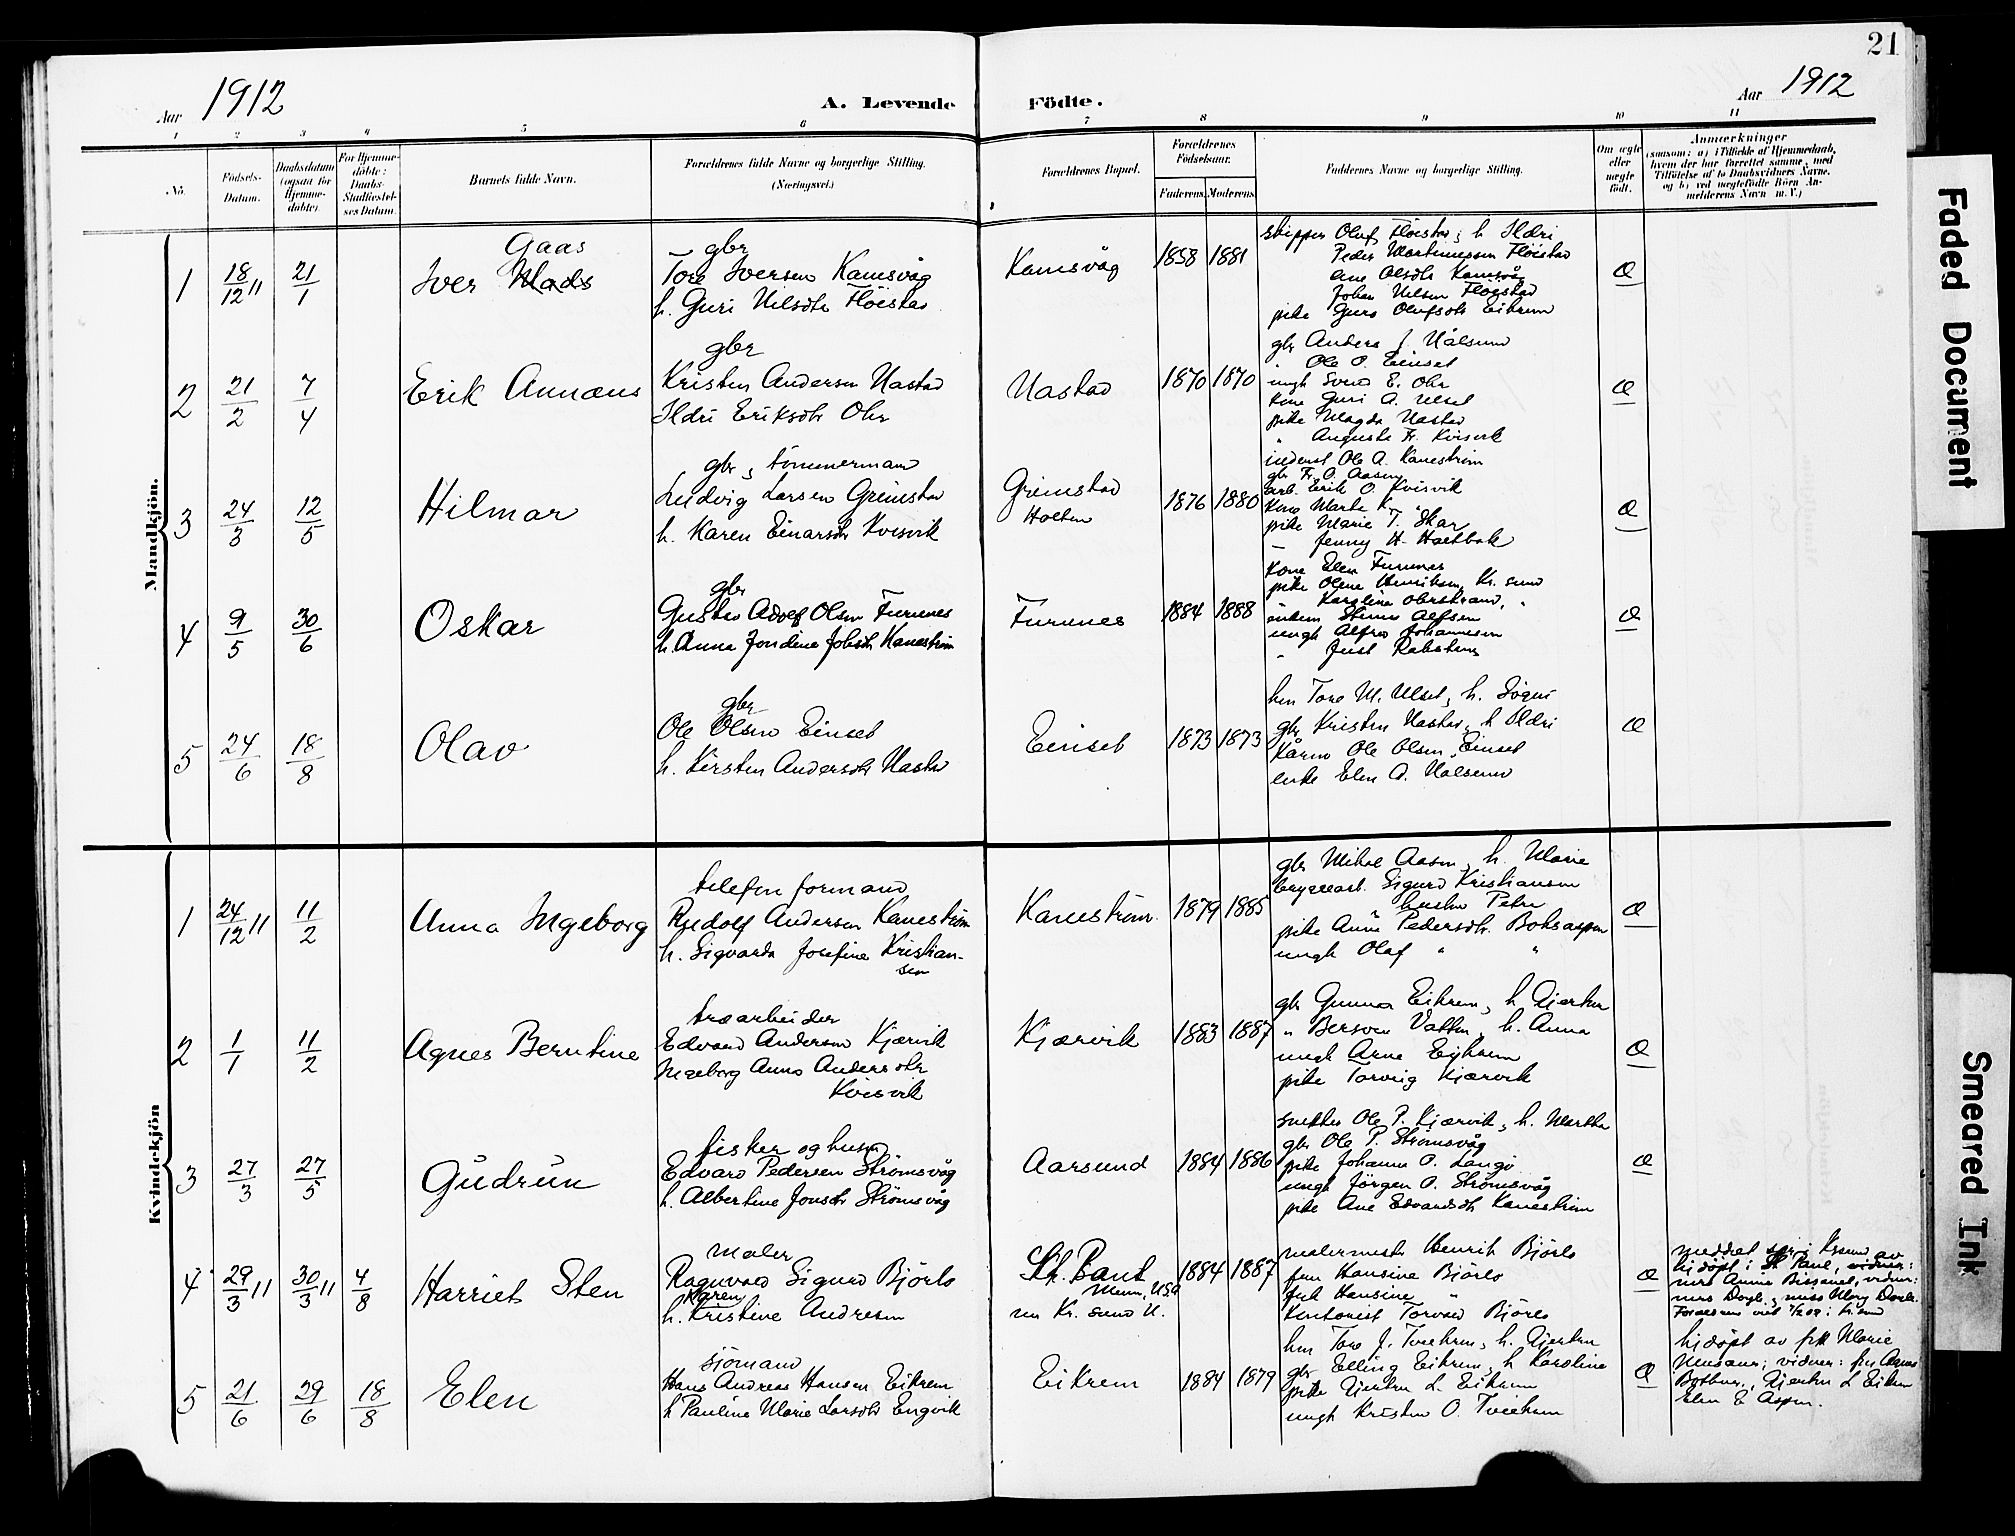 21
Aar 1912
A. Levende Födte.
Aar 1912
1 2 3 4 5 6 7 8 9 10 11
No.
Födsels-Datum.
Daabsdatum (ogsaa for Hjemme-döbte).
For Hjemme-döbte: Daabs-Stadfæstel-ses Datum.
Barnets fulde Navn.
Forældrenes fulde Navne og borgerlige Stilling. (Næringsvei.)
Forældrenes Bopæl.
Forældrenes Födselsaar.
Faderens. Moderens.
Faddernes Navne og borgerlige Stilling.
Om ægte eller uægte födt.
Anmærkninger
(saasom: a) i Tilfælde af Hjemmedaab, hvem der har forrettet samme, med Tilföielse af to Daabsvidners Navne, og b) ved uægtefödte Börn An-melderens Navn m. V.)
Mandkjön.
1 18/12 " 21/1 Iver Gaas
gbr
Tore Iversen Kamsvåg
h. Guri Nilsdtr Flöistad
Kamsvåg 1858 1881
skipper Oluf Flöistad, h. Ildri
Peder Martinussen Flöistad
Ane Olsdtr Kamsvåg
Johan Nilsen Flöistad
pike Guro Olufsdtr Eikrem
Æ
2 21/2 7/4 Erik Annæus
gbr
Kristen Andersen Nastad
Ildri Eriksdtr Ohr
Nastad 1870 1870
gbr Anders J. Nålsund
" Ole O. Einset
ungk Svend E. Ohr
kone Guri A. Ulset
pike Magda Nastad
" Auguste Fr. Kvisvik
Æ
3 24/3 12/5 Hilmar
gbr, tömmermand
Ludvig Larsen Grimstad
h. Karen Einarsdtr Kvisvik
Grimstad
Holten
1876 1880
inderst Ole A. Kaneström
gbr Fr. O. Aasen
arb. Erik O. Kvisvik
kone Marte K
pike Marie T. Skar
— Jenny H. Holtbak
Æ
4 9/5 30/6 Oskar
gbr
Gustav Adolf Olsen Furunes
h. Anna Jondine Johsdtr Kaneström
Furunes 1884 1888
Kone Elen Furunes
pike Oline Henriksen, Kr.sund
Karoline Oterstrand, "
ungk Alfred Johannesen
Æ
5 24/6 18/8 Olav
gbr
Ole Olsen Einset
h. Kirsten Andersdtr Nastad
Einset 1873 1873
hm Tore M. Ulset, h. Sögni
gbr Kristen Nastad, h. Ildri
Kårm Ole Olsen Einset
enke Elen A. Nålsund
Æ
Kvindekjön
1 24/12 " 11/2 Anna Ingeborg
telefon formand
Rudolf Andersen Kaneström
h. Sigvarda Josefine Kristian-
sen
Kaneström 1879 1885
gbr Mikal Aasen, h. Marie
bryggearb. Sigurd Kristiansen
" hustru Petra
pike Anne Pedersdtr. Boksaspen
ungk Olaf " "
Æ
2 1/1 11/2 Agnes Berntine
træarbeider
Edvard Andersen Kjærvik
Ingeborg Anna Andersdtr
Kvisvik
Kjærvik 1883 1887
gbr Gunnar Eikrem, h. Gjertru
" Berson Vatten, h. Anna
ungk Arne Eikrem
pike Torvig Kjærvik
Æ
3 27/3 27/5 Gudrun
fisker og husm
Edvard Pedersen Strömsvåg
h. Albertine Jonsdtr Strömsvåg
Aarsund 1884 1886
snekker Ole P. Kjærvik, h. Martha
gbr Ole P. Strömsvåg
pike Johanna O. Langö
ungk Jörgen O. Strömsvåg
pike Ane Edvardsdtr Kaneström
Æ
4 29/3 " 30/3 " 4/8 Harriet Sten
maler
Ragnvald Sigurd Björlo
Karen
h. Kristine Andresen
St. Paul
Minn, USA
nu Kr.sund N.
1884 1887
malermester Henrik Björlo
fru Hansine Björlo
frk Hansine "
kontorist Torvald Björlo
Æ
hjdöpt i St. Paul, vidner:
mrs Doyle, miss Mary Doyle.
5 21/6 29/6 18/8 Elen
sjömand
Hans Andreas Hansen Eikrem
h. Pauline Marie Larsdtr Engvik
Eikrem 1884 1879
hm Tore J. Tveekrem, h. Gjertru
gbr Elling Eikrem, h. Karoline
pike Gjertru L. Eikrem
ungk Kristen O. Tveekrem
Æ
hjdöpt av frk Marie
Gjertru L Eikrem
Elen E Aspen.
Faded Document
Smeared Ink